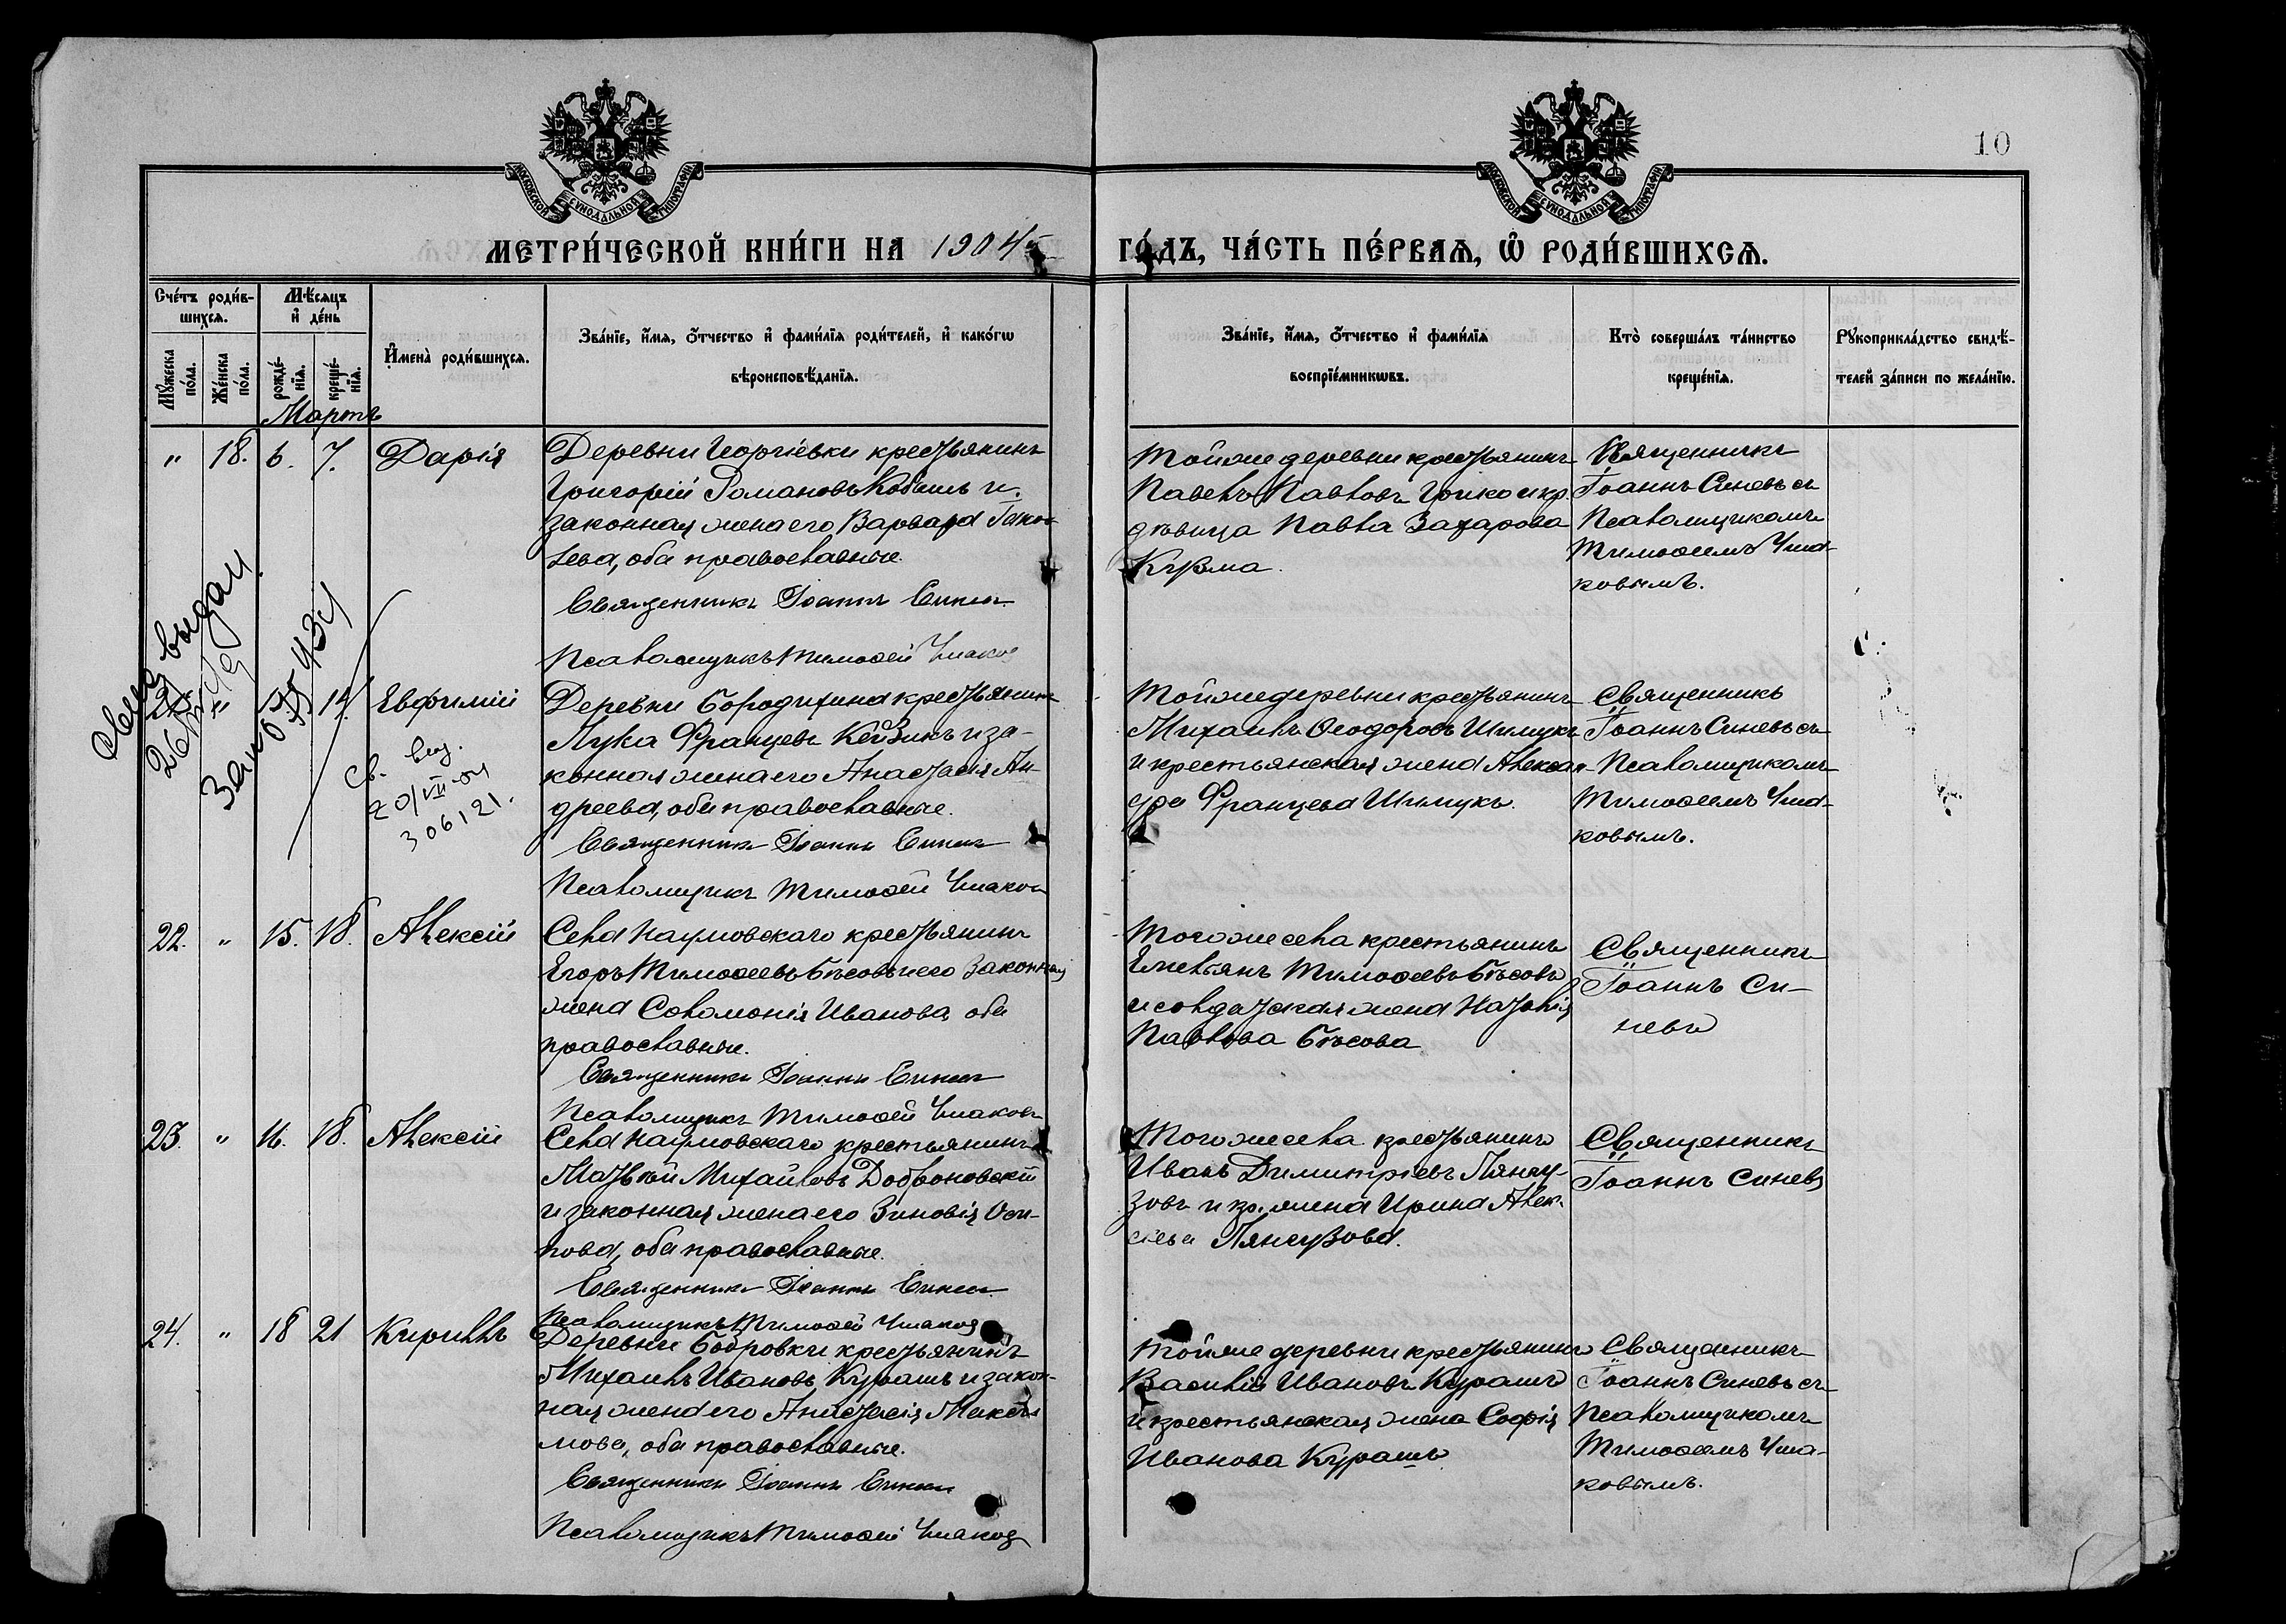 10
МОСКОВСКОЙ СУНОДАЛЬНОЙ ТИПОГРАФІИ
МОСКОВСКОЙ СУНОДАЛЬНОЙ ТИПОГРАФІИ
МЕТРИ́ЧЕСКОЙ КНИ́ГИ НА 1904
ГО́ДЪ, ЧА́СТЬ ПЕ́РВАѦ, Ѡ҆ РОДИ́ВШИХСѦ.
Сче́тъ роди́в-
шихсѧ.
Мѣ́сѧцъ
и҆ де́нь
Мꙋ́жеска
по́ла.
Же́нска
по́ла.
рожде́-
нїѧ.
креще́-
нїѧ.
И҆мена̀ роди́вшихсѧ.
Зва́нїе, и҆́мѧ, ѻ҆́тчество и҆ фами́лїѧ роди́телей, и҆ како́гѡ
вѣроисповѣ́данїѧ.
Зва́нїе, и҆́мѧ, ѻ҆́тчество и҆ фами́лїѧ
воспрїе́мникѡвъ.
Кто̀ соверша́лъ та́инство
креще́нїѧ.
Рꙋкоприкла́дство свидѣ́-
телей за́писи по жела́нїю.
Мартъ
" 18. 6. 7. Дарія
Деревни Георгіевки крестьянинъ
Григорій Романовъ и
законная жена его Варвара Яков-
лева, оба православные.
Священникъ Іоаннъ Синевъ
Псаломщикъ Тимофей
Тойже деревни крестьянинъ
Павелъ Павловъ Грико и кр.
дѣвица Павла Захарова
Кузма.
Священникъ
Іоаннъ Синевъ съ
Псаломщикомъ
Тимоѳеемъ
ковымъ.
14. Евфимій
Деревни Бородихина крестьянинъ
Лука Францевъ и за-
конная жена его Анастасія Ан-
дреева, оба православные.
Священникъ Іоаннъ Синевъ
Псаломщикъ Тимофей
Тойже деревни крестьянинъ
Михаилъ Ѳеодоровъ Шимукъ
и крестьянская жена Алексан-
дра Францева Шимукъ.
Священникъ
Іоаннъ Синевъ съ
Псаломщикомъ
Тимоѳеемъ
ковымъ.
выдан
Св. выд.
20/VII-54
306121.
22. " 15. 18. Алексій
Села Наумовскаго крестьянинъ
Егоръ Тимоѳеевъ Бѣсовъ и его законная
жена Соломонія Иванова, оба
православные.
Священникъ Іоаннъ Синевъ
Псаломщикъ Тимофей
Тогоже села крестьянинъ
Емельянъ Тимоѳеевъ Бѣсовъ
и солдатская жена Наталія
Павлова Бѣсова
Священникъ
Іоаннъ Си-
невъ
23. " 16. 18. Алексій
Села Наумовскаго крестьянинъ
Матвѣй Михайловъ Добвоновскій
и законная жена его Зиновія Оси-
пова, оба православные.
Священникъ Іоаннъ Синевъ
Псаломщикъ Тимофей
Тогоже села крестьянинъ
Иванъ Димитріевъ Лянгу-
зовъ и кр. жена Ирина Алек-
сіева Лянгузова.
Священникъ
Іоаннъ Синевъ
24. " 18 21 Кириллъ
Деревни Бобровки крестьянинъ
Михаилъ Ивановъ Курашъ и закон-
ная жена его Анастасія Макси-
мова, оба православные.
Священникъ Іоаннъ Синевъ
Псаломщикъ Тимофей
Тойже деревни крестьянинъ
Василій Ивановъ Курашъ
и крестьянская жена Софія
Иванова Курашъ
Священникъ
Іоаннъ Синевъ съ
Псаломщикомъ
Тимоѳеемъ
ковымъ.